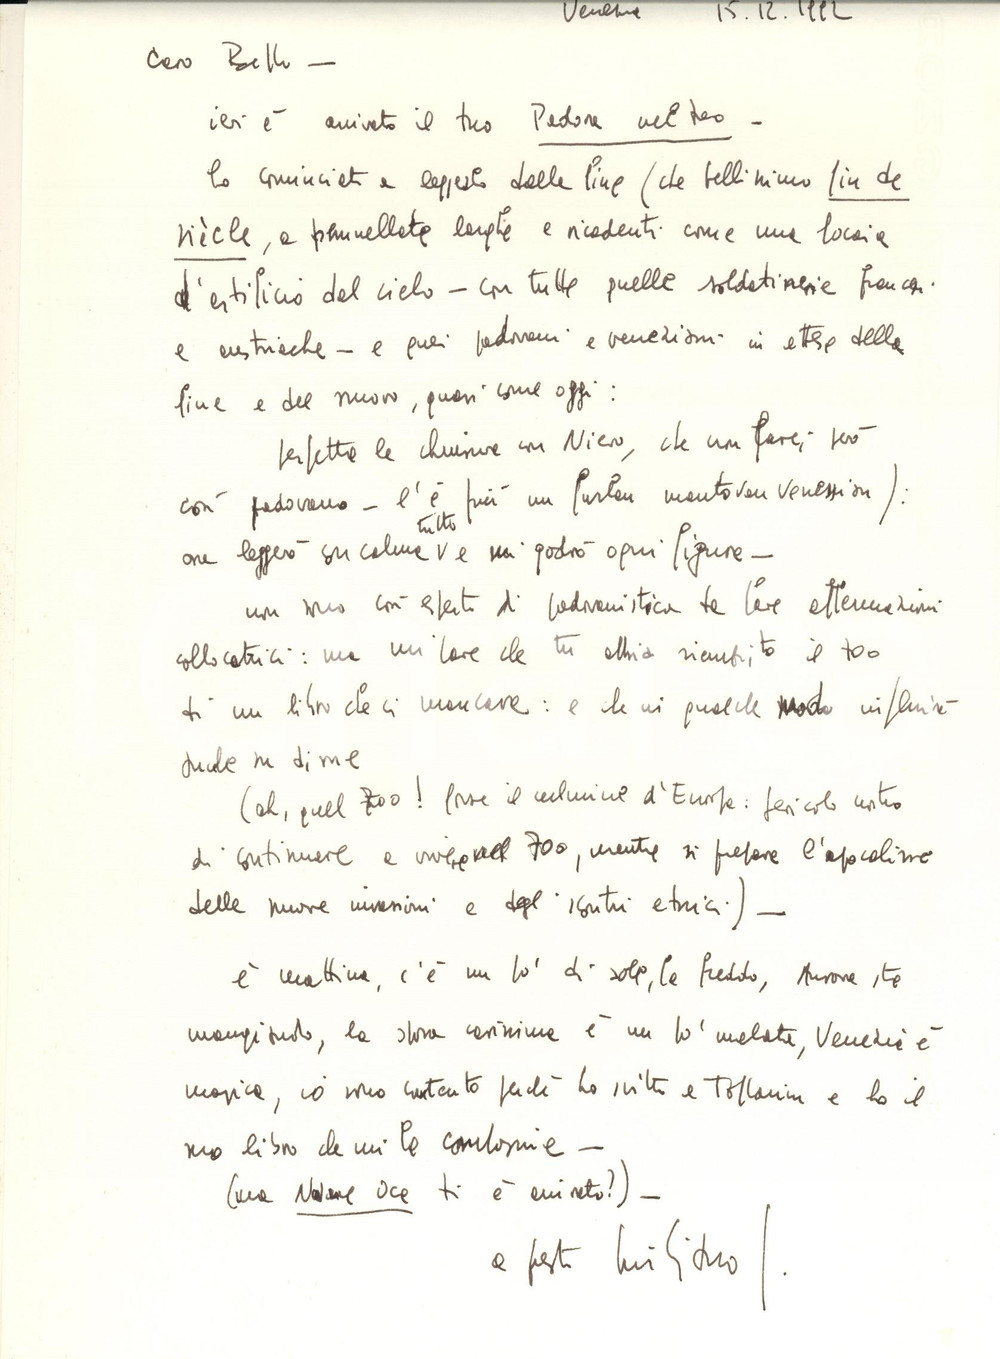 Venezia 15.12.1992
Caro Bello —
ieri è arrivato il tuo Padova nel 700 —
ho cominciato a leggerlo dalla fine (che bellissimo fin de
siècle, a pennellate larghe e ricadenti come una focaia
d'artificio dal cielo — con tutte quelle soldatinerie francesi
e austriache — e quei padovani e veneziani in attesa della
fine e del nuovo, quasi come oggi:
perfetta la chiusura con Nievo, che non però
così padovano — l'è più un furlan mantovan venessian):
ora leggerò con calma tutto e mi godrò ogni figura —
non sono così esperto di padovanistica da fare affermazioni
collocatrici: ma mi pare che tu abbia riempito il 700
di un libro che ci mancava: e che in qualche modo influirà
anche su di me
(ah, quel 700! forse il culmine d'Europa: pericolo nostro
di continuare a vivere nel 700, mentre si prepara l'apocalisse
delle nuove invasioni e degli scontri etnici) —
è mattina, c'è un po' di sole, fa freddo, Aurora sta
mangiando, la carissima è un po' malata, Venezia è
magica, io sono contento perché ho scritto a e ho il
tuo libro che mi fa compagnia —
(ma ti è arrivato?) —
a presto